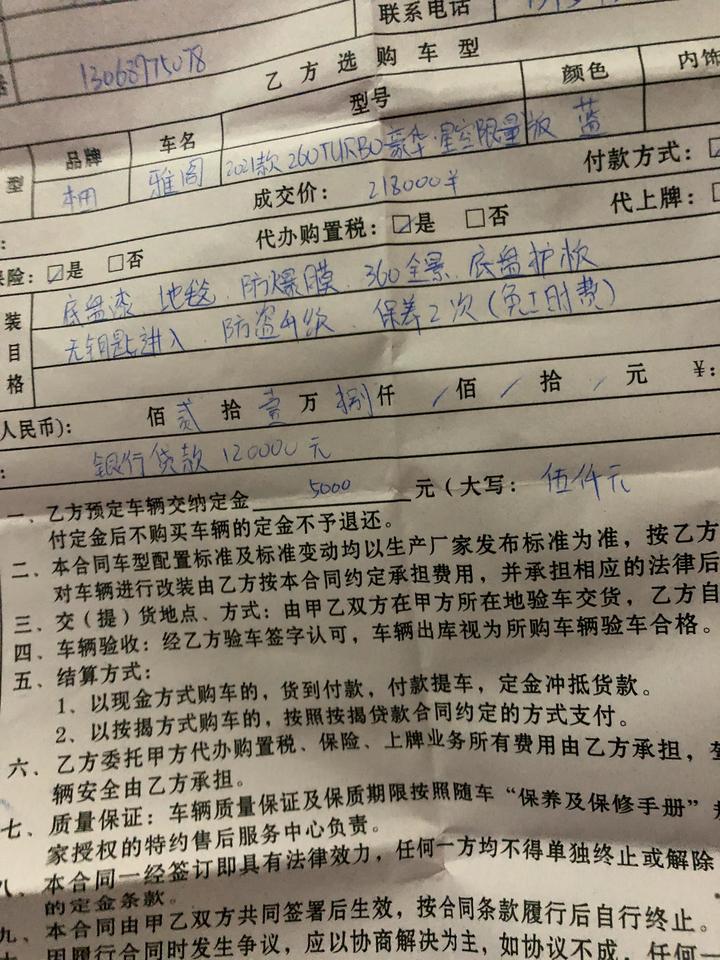 联系电话
13068975078
乙方选购车型
型 品牌 车名 型号 颜色 内饰
雅阁 2021款 260TURBO豪华·星空限量版 蓝
成交价: 218000¥ 付款方式:
保险: ☑是 □否 代办购置税: ☑是 □否 代上牌:
装 底盘漆、地毯、防爆膜、360全景、底盘护板
目 无钥匙进入、防盗升级、保养2次(免工时费)
格
人民币): 佰 贰 拾 壹 万 捌 仟 / 佰 / 拾 / 元 ¥:
银行贷款 120000元
一、乙方预定车辆交纳定金 5000 元(大写: 伍仟元
付定金后不购买车辆的定金不予退还。
二、本合同车型配置标准及标准变动均以生产厂家发布标准为准,按乙方
对车辆进行改装由乙方按本合同约定承担费用,并承担相应的法律后
三、交(提)货地点、方式:由甲乙双方在甲方所在地验车交货,乙方自
四、车辆验收:经乙方验车签字认可,车辆出库视为所购车辆验车合格。
五、结算方式:
1、以现金方式购车的,货到付款,付款提车,定金冲抵货款。
2、以按揭方式购车的,按照按揭贷款合同约定的方式支付。
六、乙方委托甲方代办购置税、保险、上牌业务所有费用由乙方承担,
辆安全由乙方承担。
七、质量保证:车辆质量保证及保质期限按照随车“保养及保修手册”
家授权的特约售后服务中心负责。
八、本合同一经签订即具有法律效力,任何一方均不得单独终止或解除
的定金条款。
九、本合同由甲乙双方共同签署后生效,按合同条款履行后自行终止。
甲履行合同时发生争议,应以协商解决为主,如协议不成,任何一